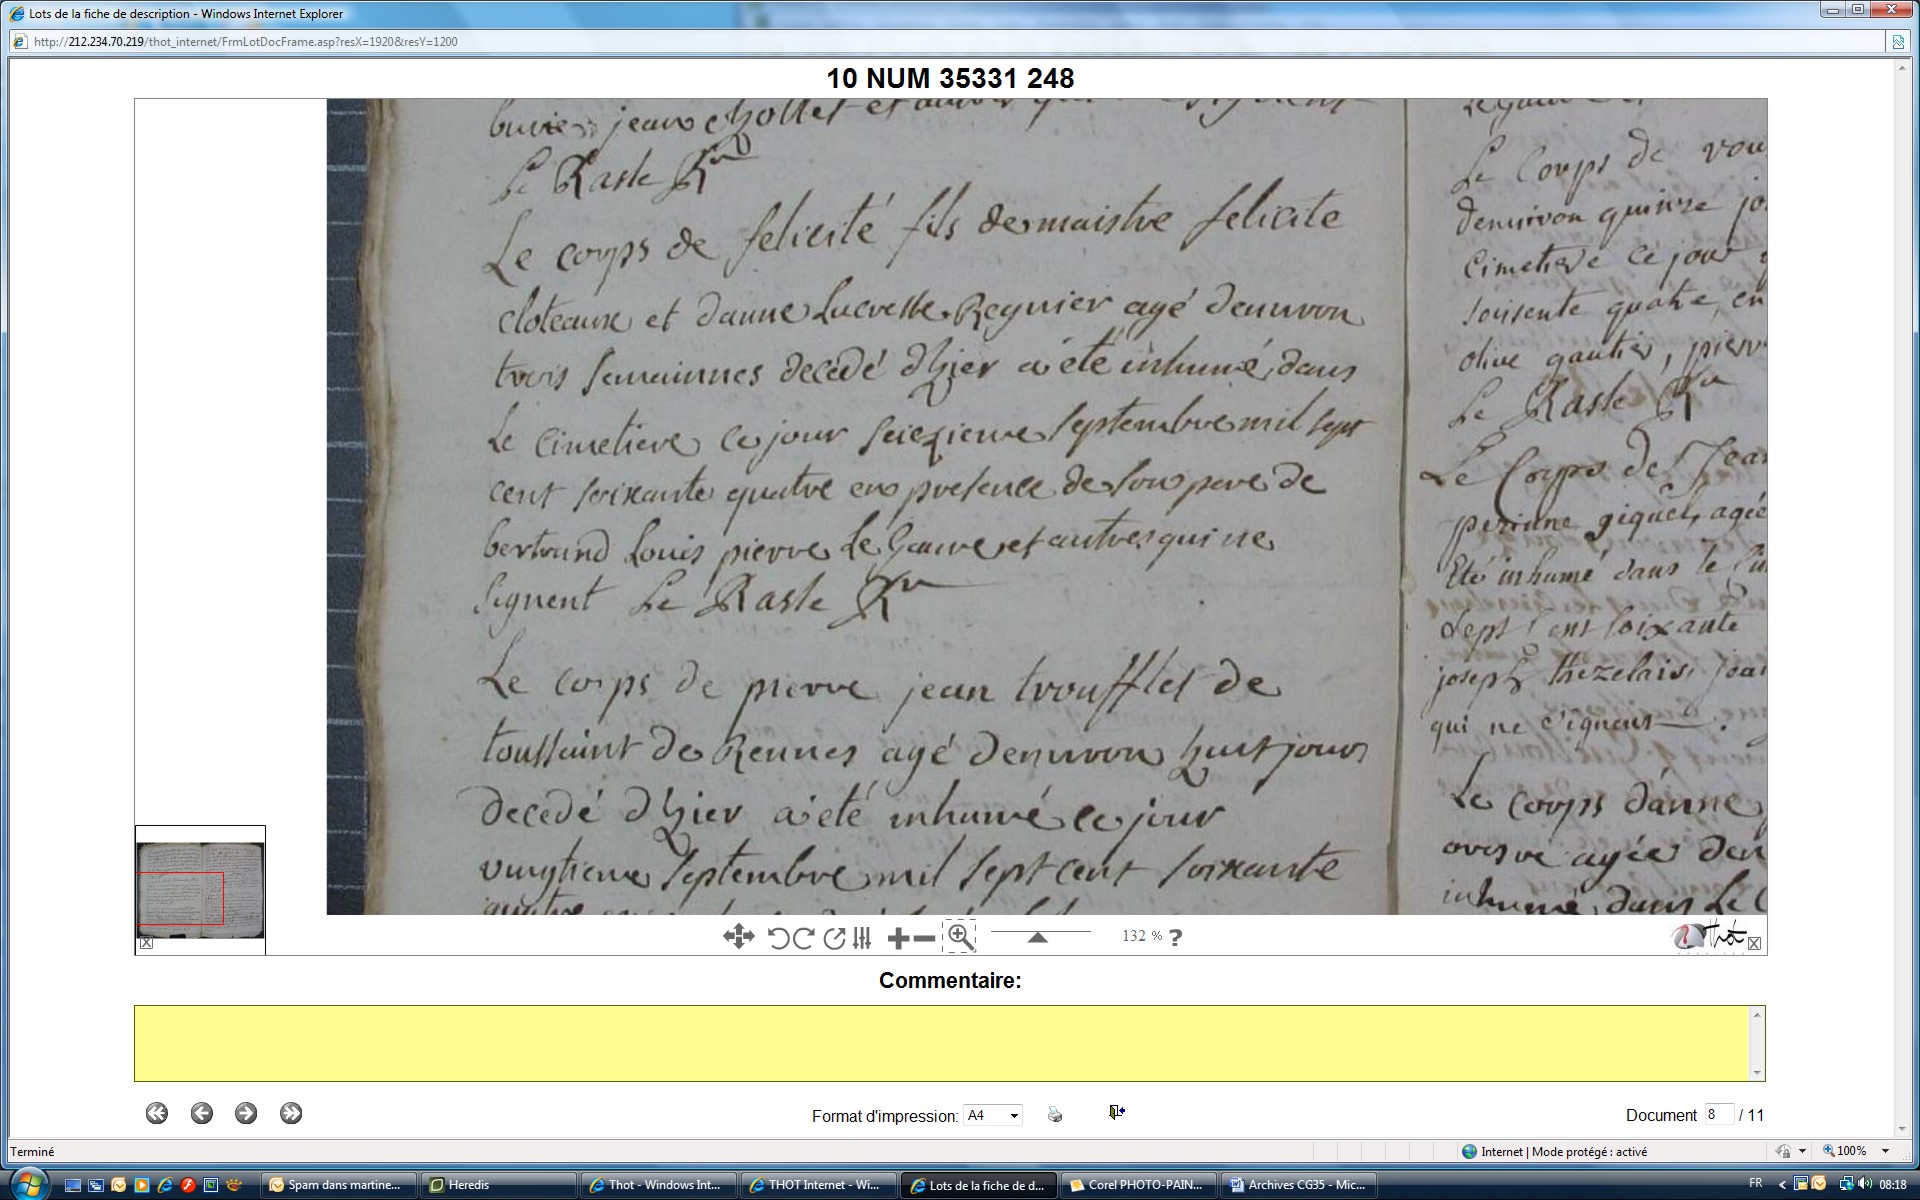 Lots de la fiche de description - Windows Internet Explorer
http://212.234.70.219/thot_internet/FrmLotDocFrame.asp?resX=1920&resY=1200
10 NUM 35331 248
jean chollet et
Le Rasle Rr
Le corps de felicité fils de maistre felicite
cloteaux et danne Lucresse Regnier agé denviron
trois semainnes decedé d'hier a été inhumé dans
Le cimetiere ce jour seizieme septembre mil sept
cent soixante quatre en presence de son pere de
bertrand Louis pierre Le Gaure et autres qui ne
signent Le Rasle Rr
Le corps de pierre jean troufflet de
toussaint de Rennes agé denviron huit jours
decedé d'hier a été inhumé ce jour
vingtieme septembre mil sept cent soixante
quatre
Le Corps de
denviron quinze jo
cimetiere ce jour
soisente quatre, en
olive gautier, pierr
Le Rasle Rr
Le Corps de Jean
perinne giquel, agée
Eté inhumé dans le
Sept Cent soixante
joseph thezelais, jean
qui ne signent
Le corps d'anne
agée den
inhumé, dans Le C
132 % ?
Thot
Commentaire:
Format d'impression: A4
Document 8 / 11
Terminé
Internet | Mode protégé : activé
100%
Spam dans martine...
Heredis
Thot - Windows Int...
THOT Internet - Wi...
Lots de la fiche de d...
Corel PHOTO-PAIN...
Archives CG35 - Mic...
FR
08:18